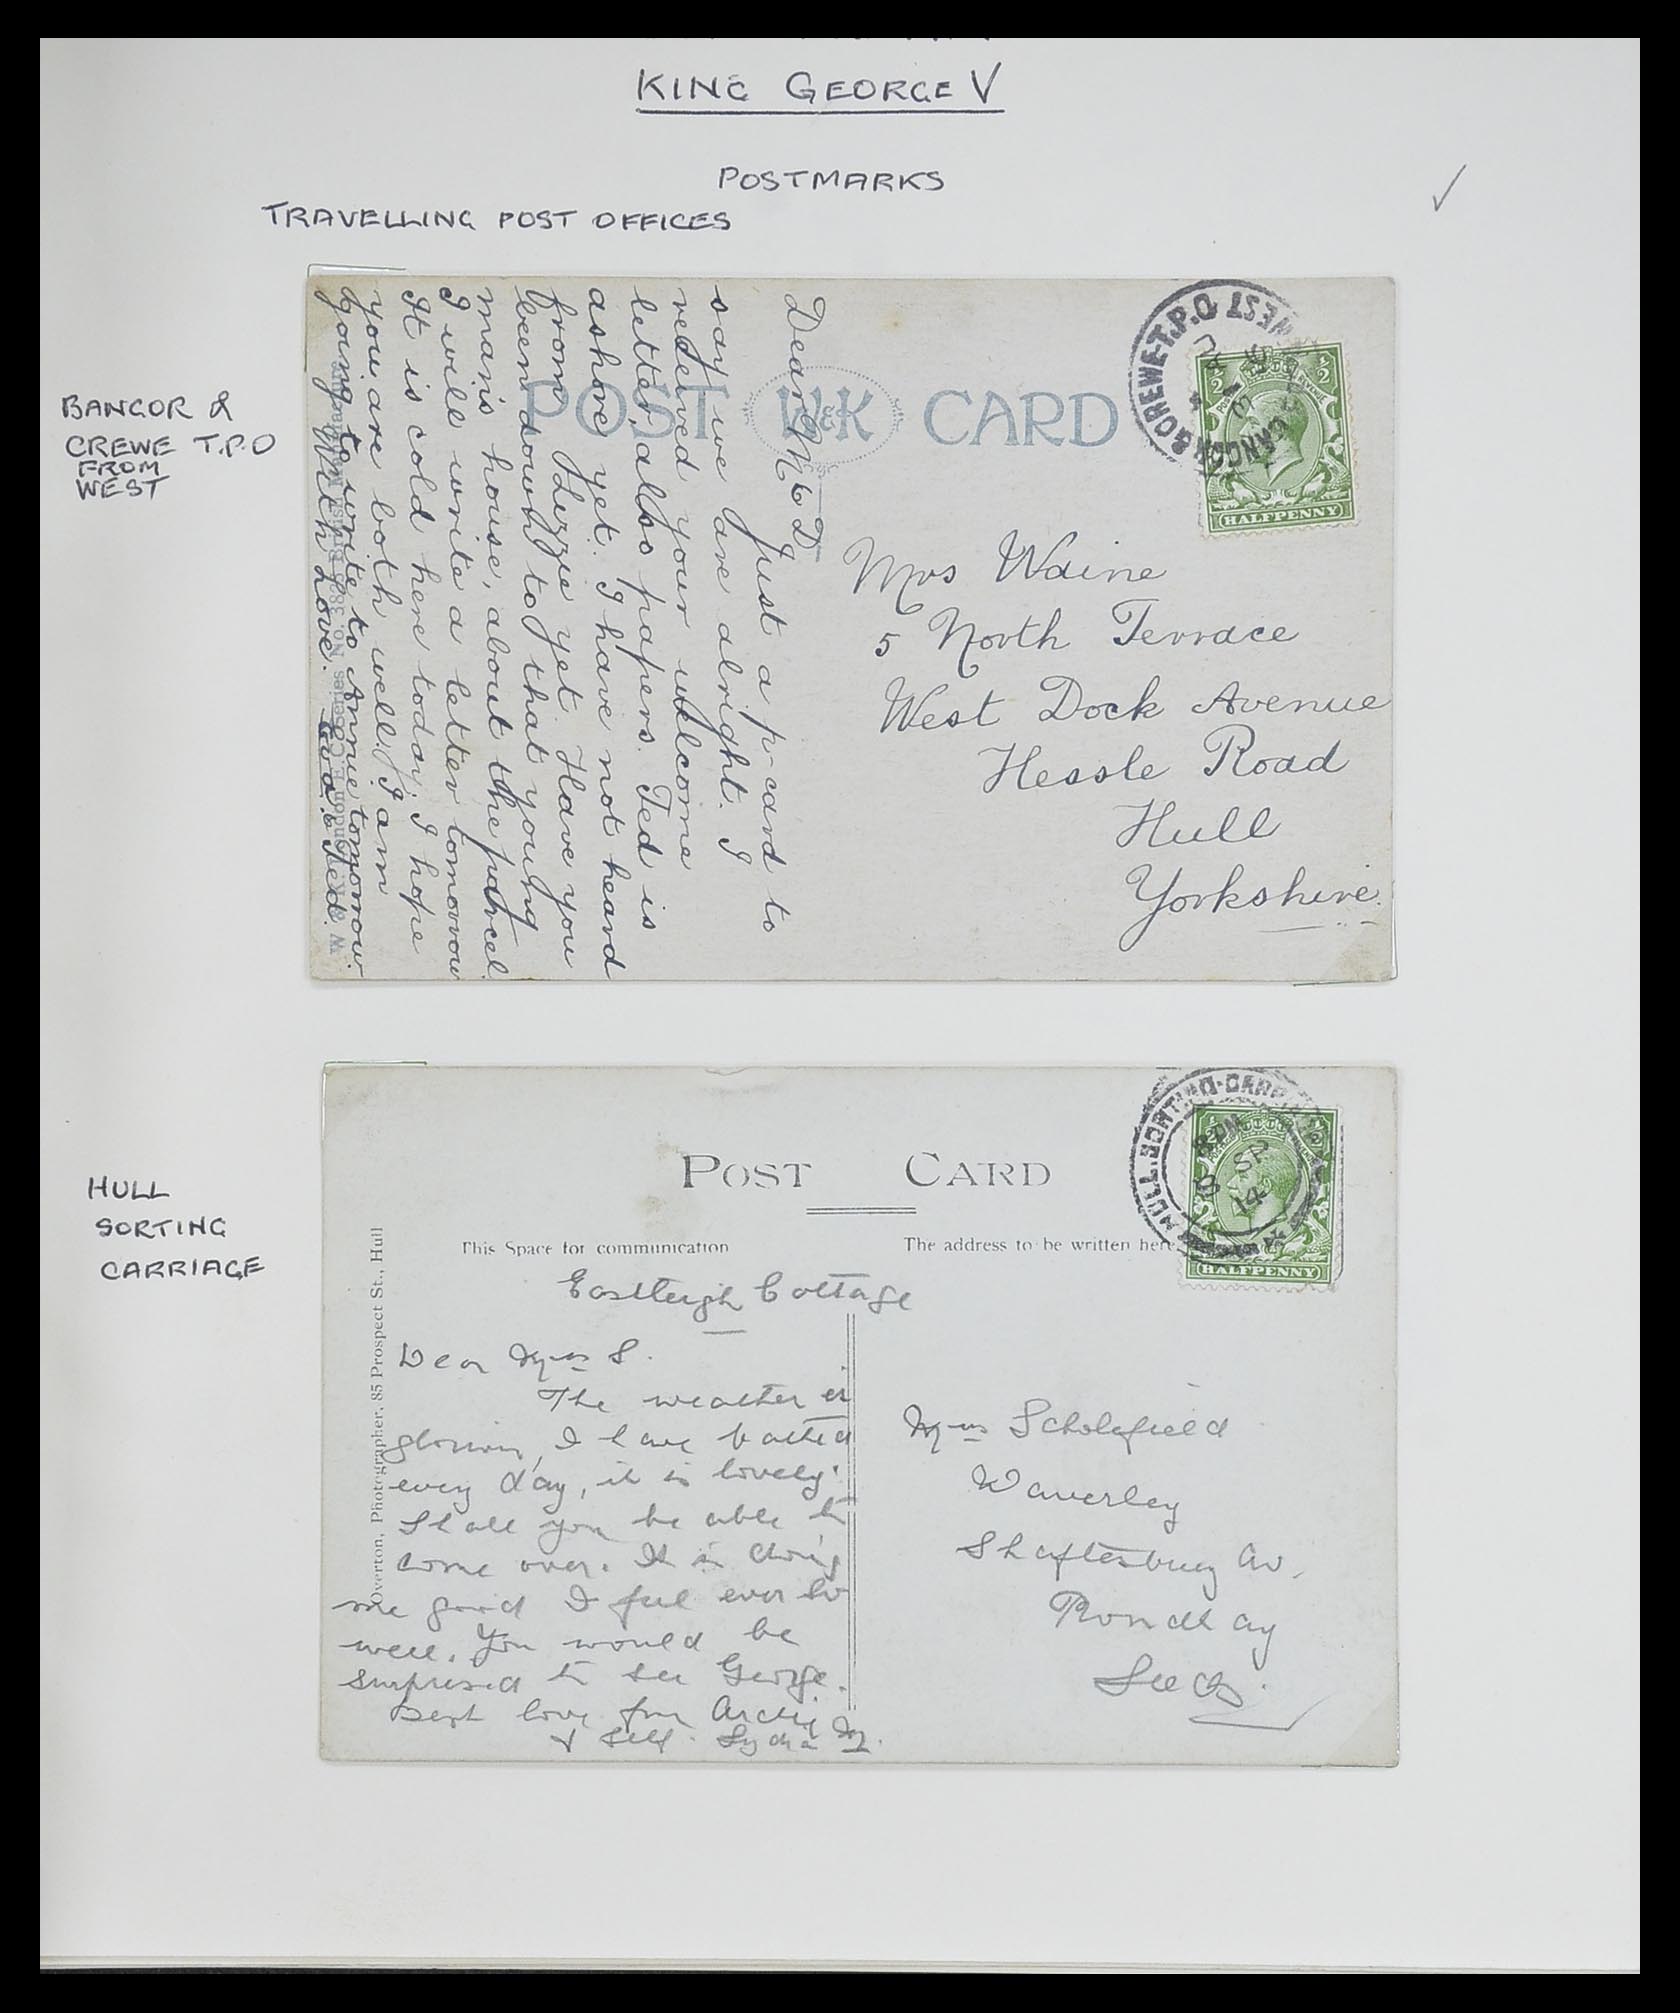 KING GEORGE V
POSTMARKS
TRAVELLING POST OFFICES
BANGOR &
CREWE T.P.O
FROM
WEST
POST W&K CARD
& CREWE-T.P.O
WEST
HALFPENNY
Dear M & D
Just a p-card to
say we are alright. I
received your welcome
letter, also papers. Ted is
ashore yet. I have not heard
from Lizzie yet. Have you
been down to that young
man's house, about the parcel
I will write a letter tomorrow
It is cold here today, I hope
you are both well. I am
going to write to Annie tomorrow.
With Love. Eva & Ted.
Mrs Waine
5 North Terrace
West Dock Avenue
Hessle Road
Hull
Yorkshire.
HULL
SORTING
CARRIAGE
POST CARD
This Space for communication
The address to be written here
HULL.SORTING-CARR
8 PM
8 SP
14
HALFPENNY
Overton, Photographer, 85 Prospect St., Hull
Eastleigh Cottage
Dear Mrs S.
The weather is
glorious, I have bathed
every day, it is lovely.
Shall you be able to
come over. It is doing
me good I feel ever so
well. You would be
surprised to see George.
Best love from Archie
& self. Lydia M.
Mrs Scholefield
Waverley
Shaftesbury Av.
Roundhay
Leeds.